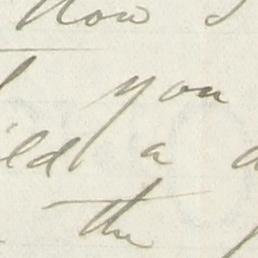 now
you
ild a
the